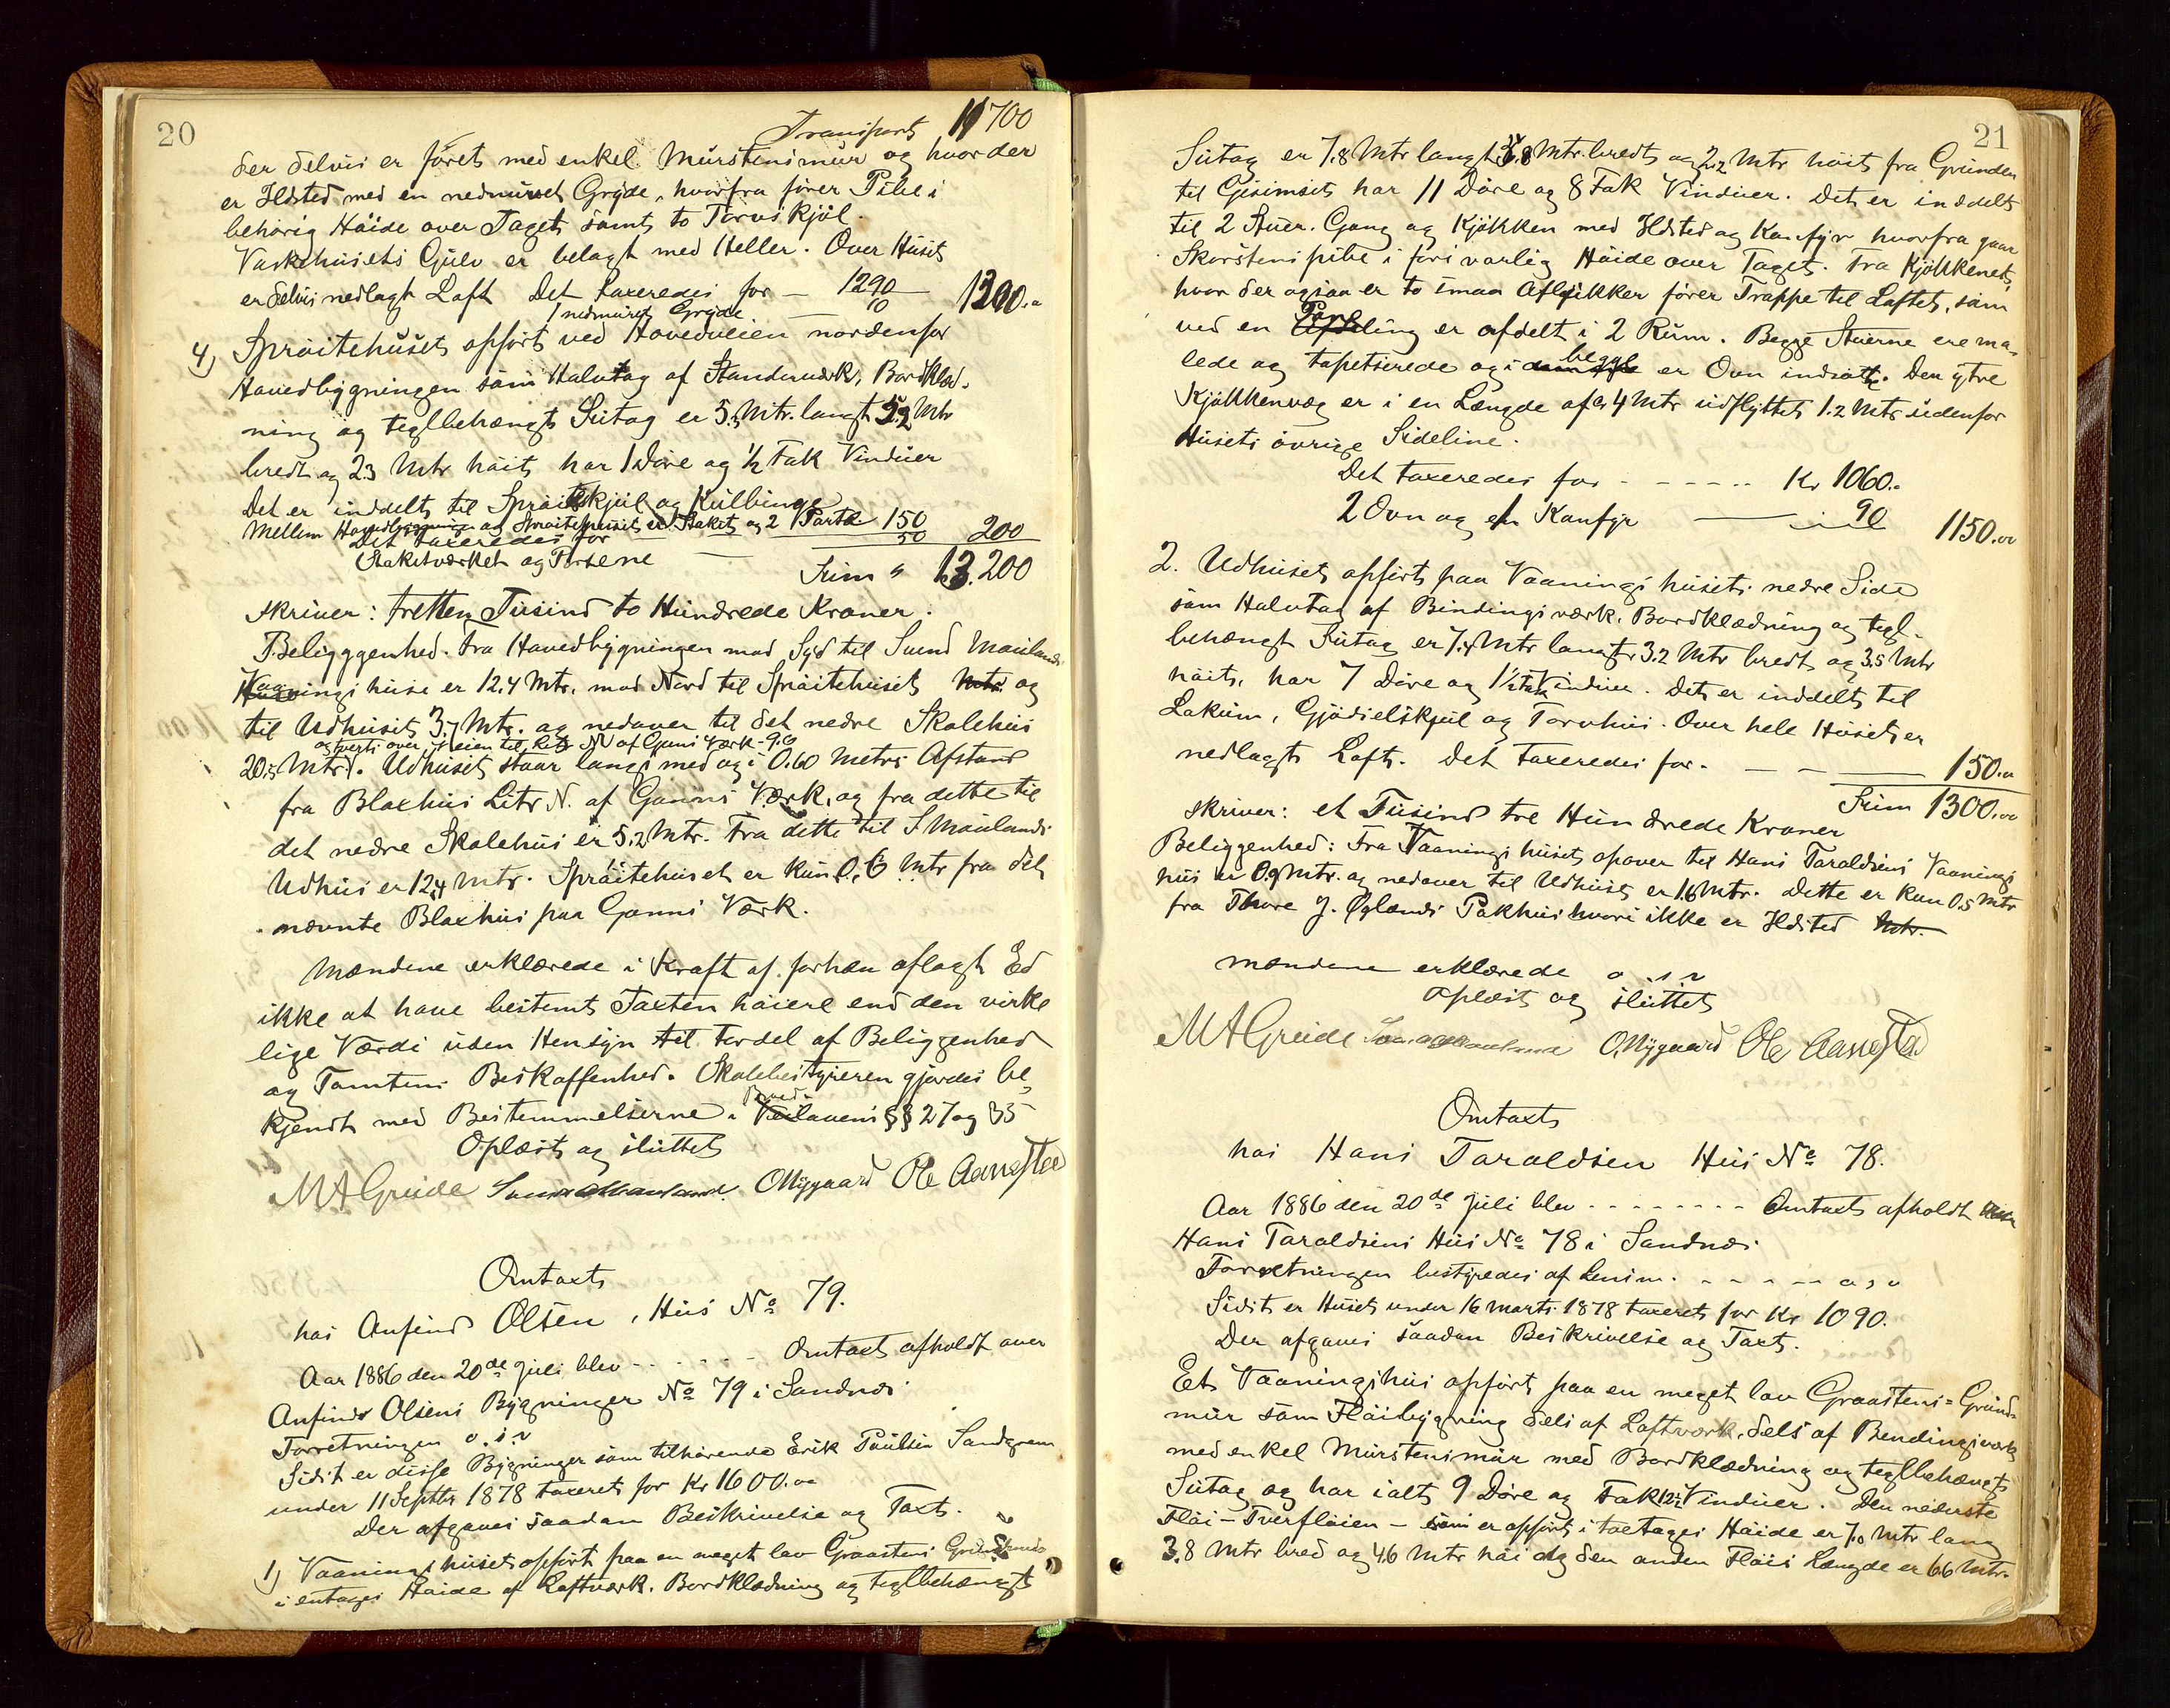 20
Transport 11700
der delvis er foret med enkel Murstensmur og hvor der
er Ildsted med en nedmuret Gryde, hvorfra fører Pibe i
behørig Høide over Taget samt to Torvskjøl.
Vaskehusets Gulv er belagt med Heller. Over Huset
er delvis nedlagt Loft Det taxeredes for — 1290
1 nedmuret Gryde — 10 1300.
4) Sprøitehuset opført ved Hovedveien nordenfor
Hovedbygningen som Halvtag af Standerværk, Bordklæd-
ning og teglbehængt Sutag er 5.5 Mtr. langt 5.2 Mtr
bredt og 2.3 Mtr høit, har 1 Døre og ½ Fak Vinduer
Det er inddelt til Sprøiteskjul og Kulbinge
Mellem Hovedbygningen og Sprøitehuset er Staket og 2 Porte 150
Det taxeredes for 50 200
Staketværket og Portene —
Sum " 13.200
skriver: tretten Tusind to Hundrede Kroner.
Beliggenhed. Fra Hovedbygningen mod Syd til Svend Maulands
Vaaningshuse er 12.4 Mtr. mod Nord til Sprøitehuset og
til Udhuset 3.7 Mtr. og nedover til det nedre Skolehus
og tverts over Veien til Litr N af Ganns Værk - 9.6
20.5 Mtr. Udhuset staar langs med og i 0.60 Metrs Afstand
fra Blaxhus Litr N. af Ganns Værk, og fra dette til
det nedre Skolehus er 5.2 Mtr. Fra dette til S Maulands
Udhus er 12.4 Mtr. Sprøitehuset er kun 0,6 Mtr fra det
nævnte Blaxhus paa Ganns Værk.
Mændene erklærede i Kraft af forhen aflagt Ed
ikke at have bestemt Taxten høiere end den virke
lige Værdi uden Hensyn til Fordel af Beliggenhed
og Tomtens Beskaffenhed. Skolebestyreren gjordes be-
kjendt med Bestemmelserne i Brandlovens §§ 27 og 35
Oplæst og sluttet
M A Greide Svend A Mauland. O Nygaard Ole Aanestad
Omtaxt
hos Anfind Olsen, Hus No 79.
Aar 1886 den 20de Juli blev - - - - - Omtaxt afholdt over
Anfind Olsens Bygninger No 79 i Sandnæs
Forretningen o. s. v
Sidst er disse Bygninger som tilhørende Erik Paulsen Sandgren
under 11 Septbr 1878 taxeret for Kr 1600.00
Der afgaves saadan Beskrivelse og Taxt.
1) Vaaningshuset opført paa en meget lav Graastens Grundmur
i entages Høide af Loftværk, Bordklædning og teglbehængt
21
Sutag er 7.8 Mtr langt 5.8 Mtr. bredt og 2.2 Mtr høit fra Grunden
til Gesimset har 11 Døre og 8 Fak Vinduer. Det er inddelt
til 2 Stuer. Gang og Kjøkken med Ildsted og Komfyr hvorfra gaar
Skorstenspibe i forsvarlig Høide over Taget. Fra Kjøkkenet,
hvor der ogsaa er to smaa Aflukker fører Trappe til Loftet, som
ved en Paneling er afdelt i 2 Rum. Begge Stuerne ere ma-
lede og tapetserede og i begge er Ovn indsatte. Den ytre
Kjøkkenvæg er i en Længde af ca 4 Mtr udflyttet 1.2 Mtr udenfor
Husets øvrige Sideline.
Det taxeredes for - - - - - Kr 1060.
2 Ovn og en Komfyr — 90 1150.00
2. Udhuset opført paa Vaaningshusets nedre Side
som Halvtag af Bindingsværk, Bordklædning og tegl-
behængt Sutag er 7.4 Mtr langt 3.2 Mtr bredt og 3.5 Mtr
høit, har 7 Døre og 1½ Fak Vinduer. Det er inddelt til
Lokum, Gjødselskjul og Torvhus. Over hele Huset er
nedlagt Loft. Det taxeredes for. — — 150.
Sum 1300.00
skriver: et Tusind tre Hundrede Kroner
Beliggenhed: Fra Vaaningshuset opover til Hans Taraldsens Vaanings
hus er 0.9 Mtr. og nedover til Udhuset er 1.6 Mtr. Dette er kun 0.5 Mtr
fra Thore J. Øglænds Pakhus hvori ikke er Ildsted
Mændene erklærede o. s. v
Oplæst og sluttet
M A Greide Svend A Mauland O. Nygaard Ole Aanestad
Omtaxt
hos Hans Taraldsen Hus No 78.
Aar 1886 den 20de Juli blev - - - - - - - Omtaxt afholdt
Hans Taraldsens Hus No 78 i Sandnæs
Forretningen bestyredes af Lensm. - - - - - o, s, v
Sidst er Huset under 16 Marts 1878 taxeret for Kr 1090.
Der afgaves saadan Beskrivelse og Taxt.
Et Vaaningshus opført paa en meget lav Graastens-Grund-
mur som Fløibygning dels af Loftværk, dels af Bendingsværk
med enkel Murstensmur med Bordklædning og teglbehængt
Sutag og har ialt 9 Døre og Fak 12½ Vinduer. Den nederste
Fløi - Tverfløien - som er opført i toetages Høide er 7.0 Mtr lang
3.8 Mtr bred og 4.6 Mtr høi og den anden Fløis Længde er 6.6 Mtr.